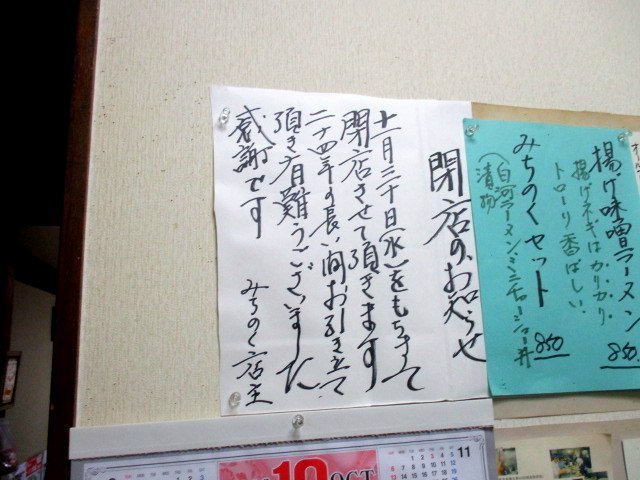 揚げ味噌ラーメン
揚げネギはカリカリ。
トローリ香ばしい
850
みちのくセット
(白河ラーメン、ミニチャーシュー丼
漬物
850
閉店のお知らせ
十一月三十日(水)をもちまして
閉店させて頂きます
二十四年の長い間お引き立て
頂き有難うございました
感謝です
みちのく店主
10 OCT
11